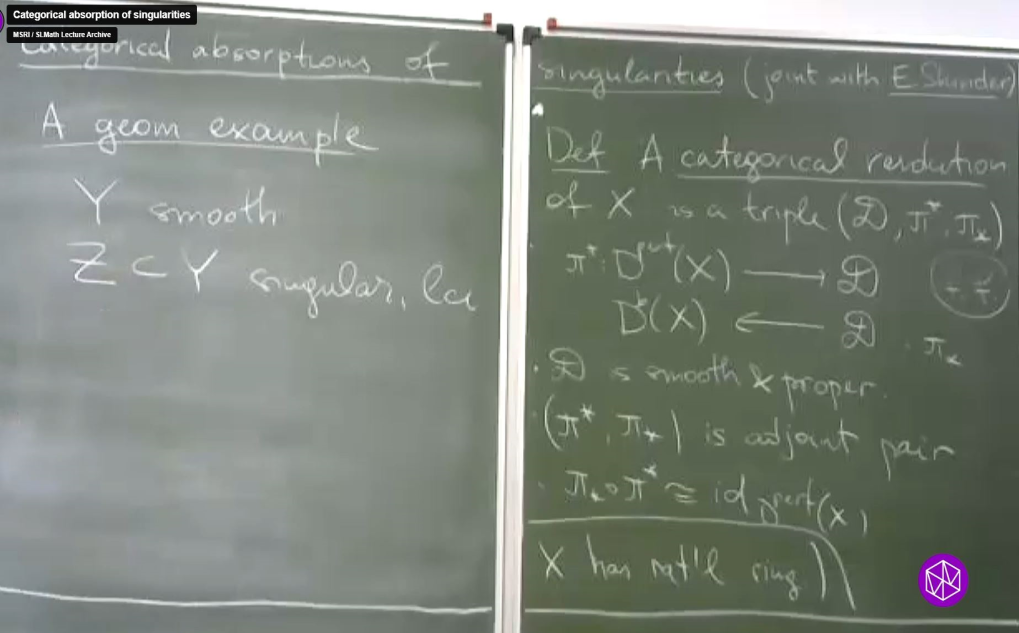 Categorical absorption of singularities
MSRI / SLMath Lecture Archive
Categorical absorptions of
A geom example
Y smooth
Z ⊂ Y singular, lci
singularities (joint with E. Shinder)
Def A categorical resolution
of X is a triple (𝒟, π*, π_*)
π*: D^perf(X) ⟶ 𝒟
D^b(X) ⟵ 𝒟 π_*
· 𝒟 is smooth & proper.
· (π*, π_*) is adjoint pair
· π_* ∘ π* ≅ id_{D^perf(X)}
X has rat'l sing